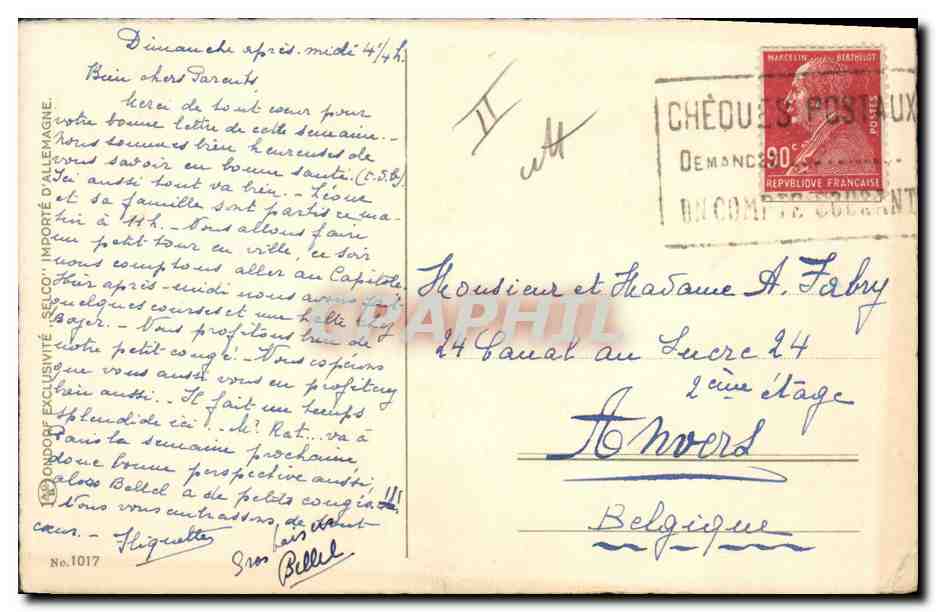 Dimanche après-midi 4 1/4 h.
Bien chers Parents
Merci de tout cœur pour
votre bonne lettre de cette semaine.-
Nous sommes bien heureuses de
vous savoir en bonne santé
Ici aussi tout va bien.- Léone
et sa famille sont partis ce ma-
tin à 11h.- Nous allons faire
un petit tour en ville, ce soir
nous comptons aller au Capitole
Hier après-midi nous avons fait
quelques courses et une halte chez
Boyer.- Nous profitons bien de
notre petit congé.- Nous espérons
que vous aussi vous en profitez
bien aussi.- Il fait un temps
splendide ici... Mr Rat... va à
Paris la semaine prochaine,
donc bonne perspective aussi,
alors Bellel a de petits congés !!!
Nous vous embrassons de tout
cœur.-
Gros bais de
Bellel
No. 1017
ONDORF EXCLUSIVITÉ „SELCO" IMPORTÉ D'ALLEMAGNE.
II
MARCELIN BERTHELOT
POSTES
90c
REPVBLIQVE FRANÇAISE
CHÈQUES POSTAUX
DEMANDEZ
UN COMPTE COURANT
CPAPHIL
Monsieur et Madame A. Fabry
24 Canal au Sucre 24
2ème étage
Anvers
Belgique